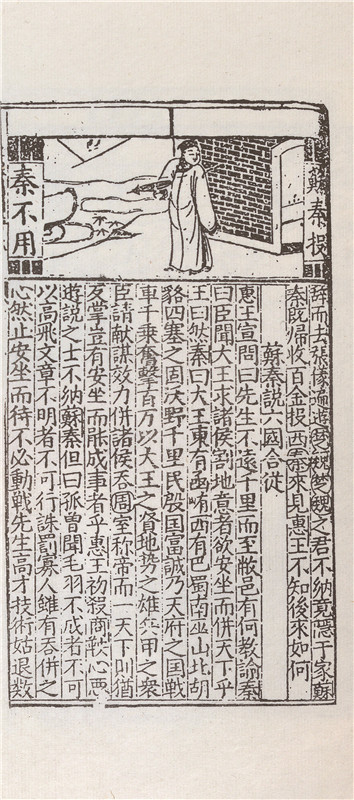 蘇秦投
秦不用
辞而去張儀遍遊楚魏楚魏之君不納竟隱于家蘇
秦既歸收百金投西秦來見惠王不知後來如何
蘇秦說六國合從
惠王宣問曰先生不遠千里而至敝邑有何教諭秦
曰臣聞大王求諸侯割地意者欲安坐而併天下乎
王曰然秦曰大王東有函崤西有巴蜀南巫山北胡
貉四塞之固沃野千里民殷国富誠乃天府之国戰
車千乘奮擊百万以大王之資地勢之雄兵甲之衆
臣請献謀效力併諸侯吞周室称帝而一天下則猶
反掌豈有安坐而能成事者乎惠王初殺商鞅心悪
遊說之士不納蘇秦但曰孤曾聞毛羽不成者不可
以高飛文章不明者不可行誅罰寡人雖有吞併之
心然止安坐而待不必動戦先生高才技術姑退数